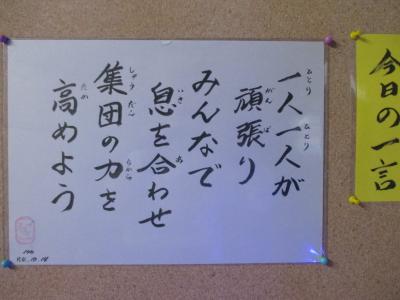 今日の一言
一人一人が
頑張り
みんなで
息を合わせ
集団の力を
高めよう
ひとり
ひとり
がんば
いき
あ
しゅうだん
ちから
たか